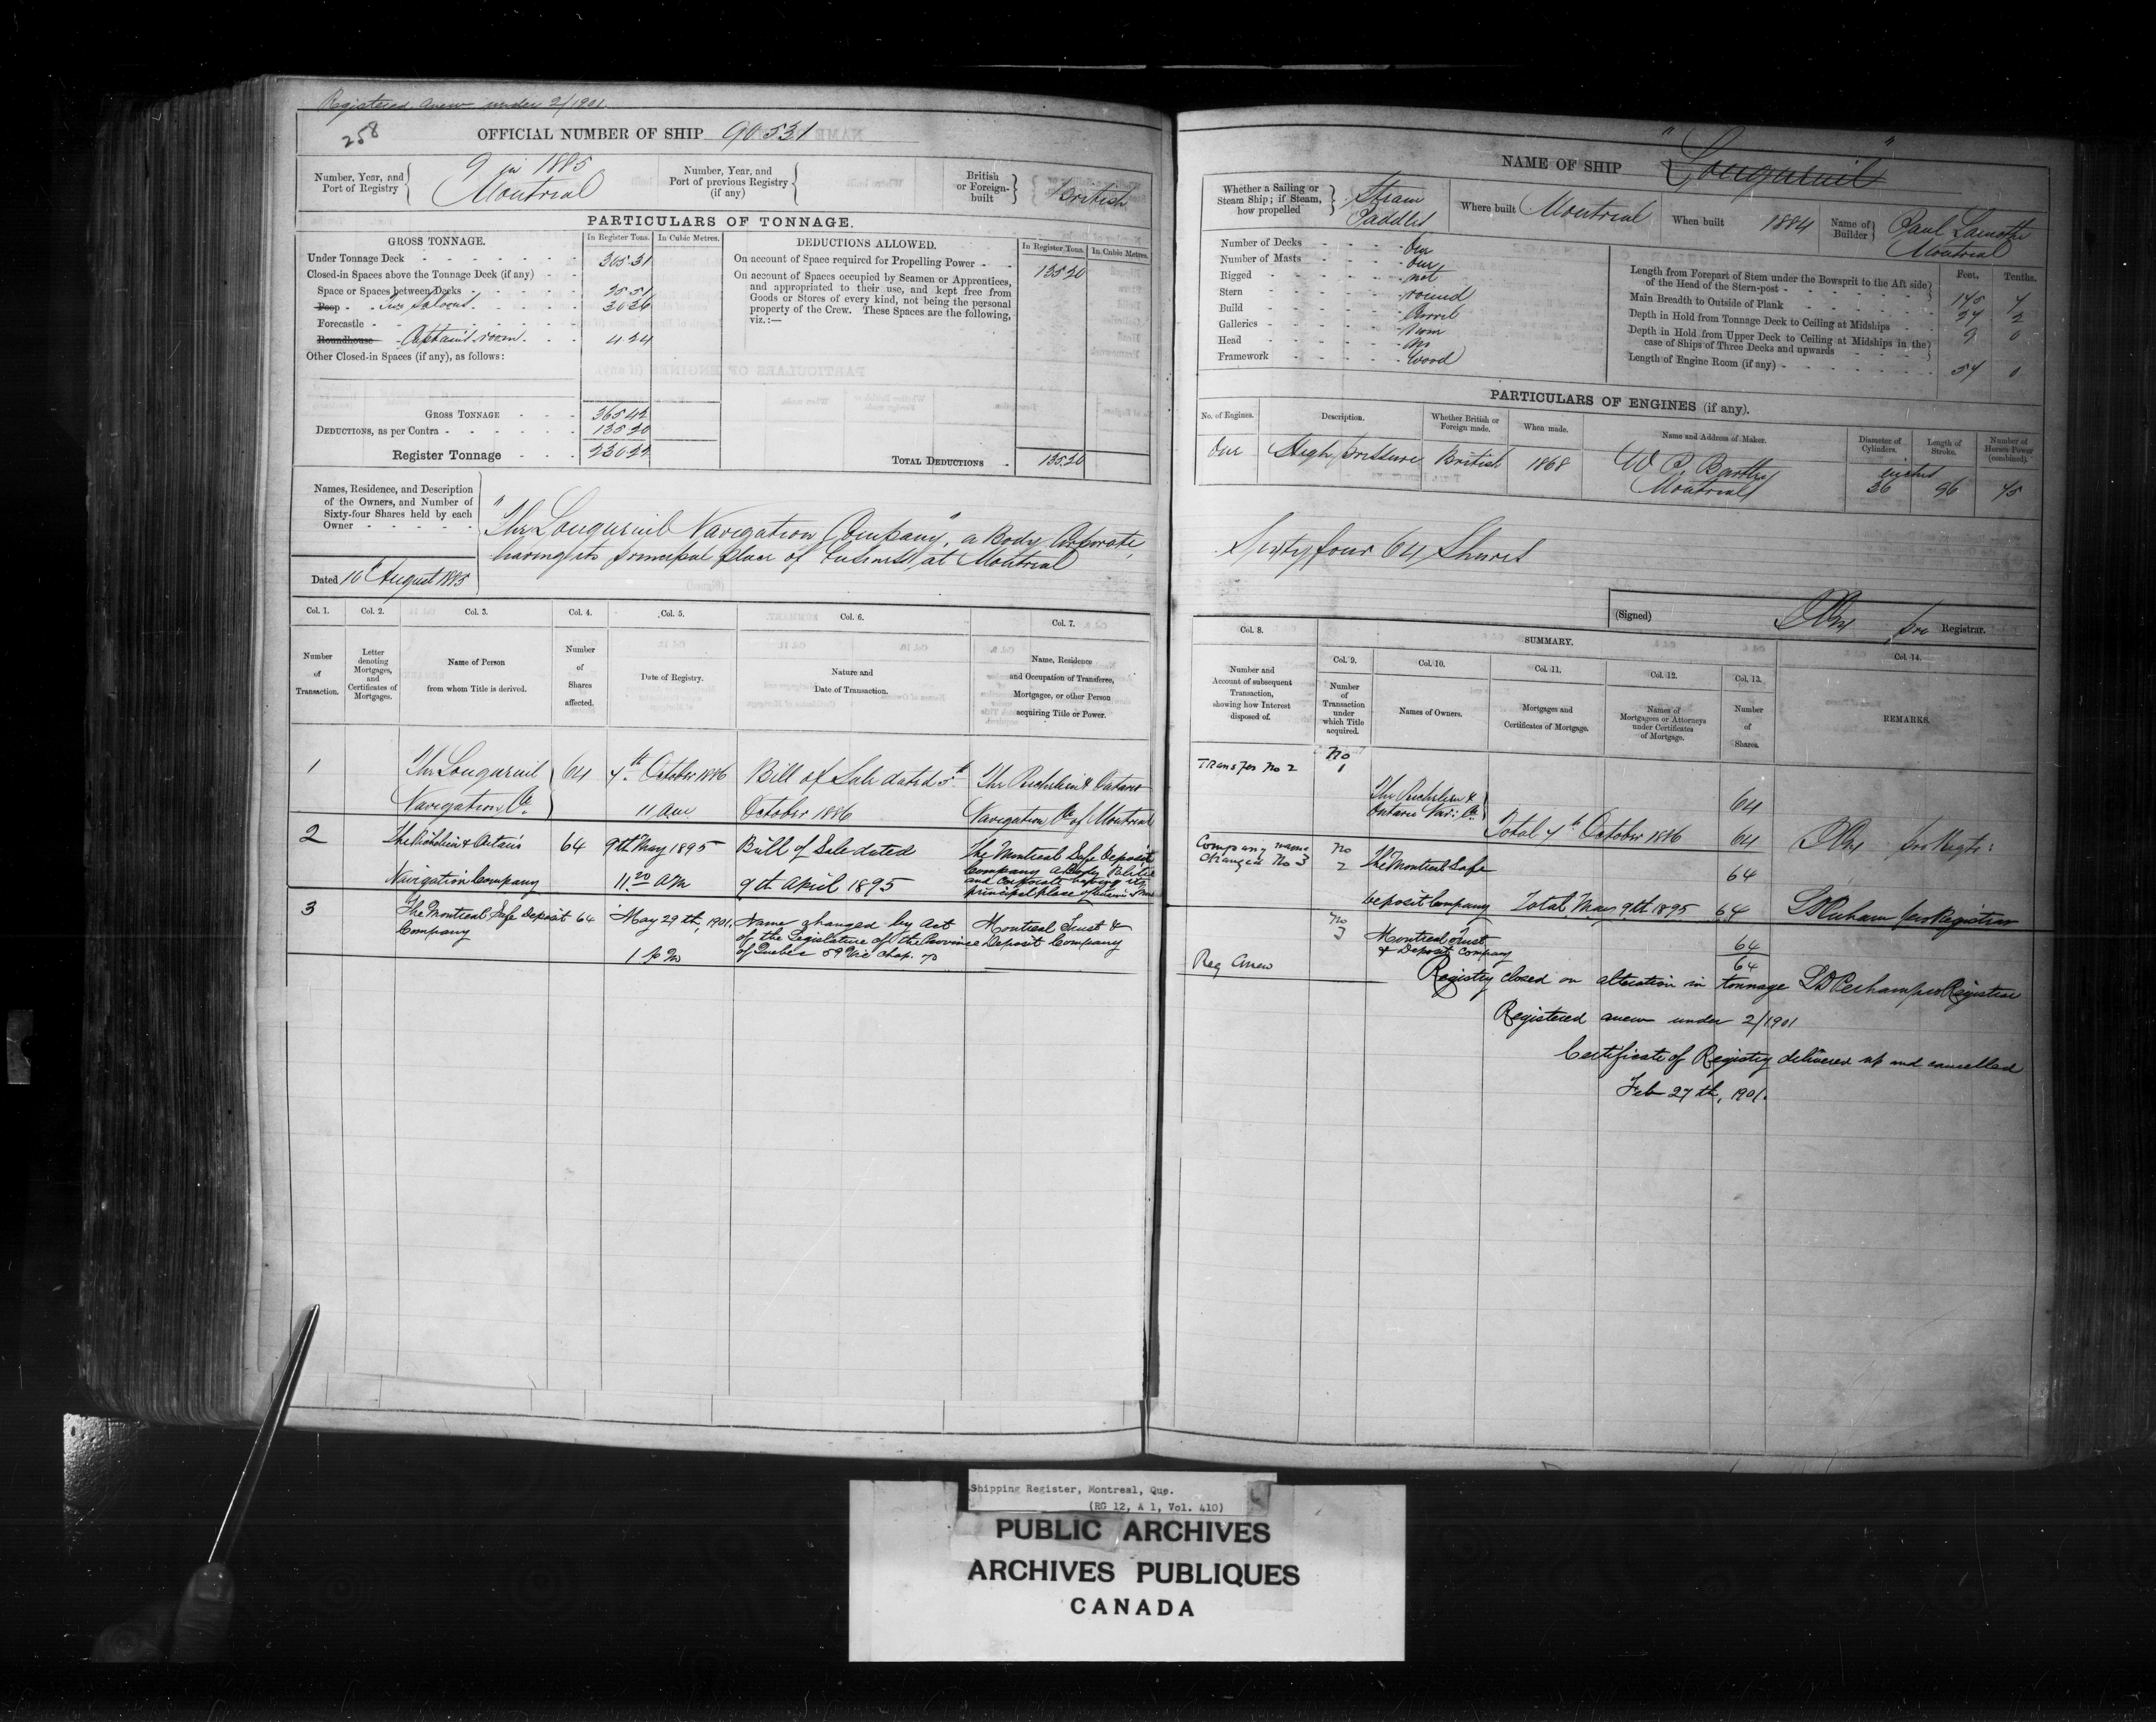 Registered anew under 2/1901
258
OFFICIAL NUMBER OF SHIP 90531
Number, Year, and Port of Registry 9 in 1885 Montreal
Number, Year, and Port of previous Registry (if any)
British or Foreign-built British
PARTICULARS OF TONNAGE.
GROSS TONNAGE. In Register Tons. In Cubic Metres.
DEDUCTIONS ALLOWED. In Register Tons. In Cubic Metres.
Under Tonnage Deck 305.31
Closed-in Spaces above the Tonnage Deck (if any)
Space or Spaces between Decks 25.51
Poop Saloons 30.36
Forecastle
Roundhouse Captain's room 4.24
Other Closed-in Spaces (if any), as follows:
GROSS TONNAGE 365.42
DEDUCTIONS, as per Contra 135.20
Register Tonnage 230.22
On account of Space required for Propelling Power 135.20
On account of Spaces occupied by Seamen or Apprentices,
and appropriated to their use, and kept free from
Goods or Stores of every kind, not being the personal
property of the Crew. These Spaces are the following,
viz.:—
TOTAL DEDUCTIONS 135.20
Names, Residence, and Description
of the Owners, and Number of
Sixty-four Shares held by each
Owner
Dated 10th August 1885
"The Longueuil Navigation Company", a Body Corporate,
having its principal place of business at Montreal
Col. 1. Col. 2. Col. 3. Col. 4. Col. 5. Col. 6. Col. 7.
Number of Transaction.
Letter denoting Mortgages, and Certificates of Mortgages.
Name of Person from whom Title is derived.
Number of Shares affected.
Date of Registry.
Nature and Date of Transaction.
Name, Residence and Occupation of Transferee, Mortgagee, or other Person acquiring Title or Power.
1 The Longueuil 64 7th October 1886 Bill of Sale dated 5th The Richelieu & Ontario
Navigation Co. 11 am October 1886 Navigation Co of Montreal
2 The Richelieu & Ontario 64 9th May 1895 Bill of Sale dated The Montreal Safe Deposit
Company a Body Politic
Navigation Company 11.20 AM 9th April 1895 and Corporate having its
principal place of
3 The Montreal Safe Deposit 64 May 29th, 1901. Name changed by Act Montreal Trust &
Company of the Legislature of the Province Deposit Company
1 PM of Quebec 59 Vic Chap. 70
NAME OF SHIP "Longueuil"
Whether a Sailing or Steam Ship; if Steam, how propelled Steam Paddles
Where built Montreal
When built 1884
Name of Builder Paul Lamothe Montreal
Number of Decks One
Number of Masts One
Rigged not
Stern round
Build Carvel
Galleries None
Head no
Framework Wood
Feet. Tenths.
Length from Forepart of Stem under the Bowsprit to the Aft side
of the Head of the Stern-post 145 7
Main Breadth to Outside of Plank 27 2
Depth in Hold from Tonnage Deck to Ceiling at Midships 9 0
Depth in Hold from Upper Deck to Ceiling at Midships in the
case of Ships of Three Decks and upwards
Length of Engine Room (if any) 54 0
PARTICULARS OF ENGINES (if any).
No. of Engines. Description. Whether British or Foreign made. When made. Name and Address of Maker. Diameter of Cylinders. Length of Stroke. Number of Horses Power (combined).
One High pressure British 1868 W P Bartley Montreal inches 36 96 45
Sixty four 64 Shares
(Signed) pro Registrar.
Col. 8. SUMMARY.
Col. 9. Col. 10. Col. 11. Col. 12. Col. 13. Col. 14.
Number and Account of subsequent Transaction, showing how Interest disposed of.
Number of Transaction under which Title acquired.
Names of Owners.
Mortgages and Certificates of Mortgage.
Names of Mortgagees or Attorneys under Certificates of Mortgage.
Number of Shares.
REMARKS.
Transfer No 2 No 1
The Richelieu & Ontario Nav: Co. 64
Total 7th October 1886 64 pro Regtr:
Company name changed No 3 No 2 The Montreal Safe 64
Deposit Company Total May 9th 1895 64 pro Registrar
No 3 Montreal Trust & Deposit Company 64
64
Reg Anew
Registry closed on alteration in tonnage pro Registrar
Registered anew under 2/1901
Certificate of Registry delivered up and cancelled
Feb 27th, 1901.
Shipping Register, Montreal, Que.
(RG 12, A 1, Vol. 410)
PUBLIC ARCHIVES
ARCHIVES PUBLIQUES
CANADA